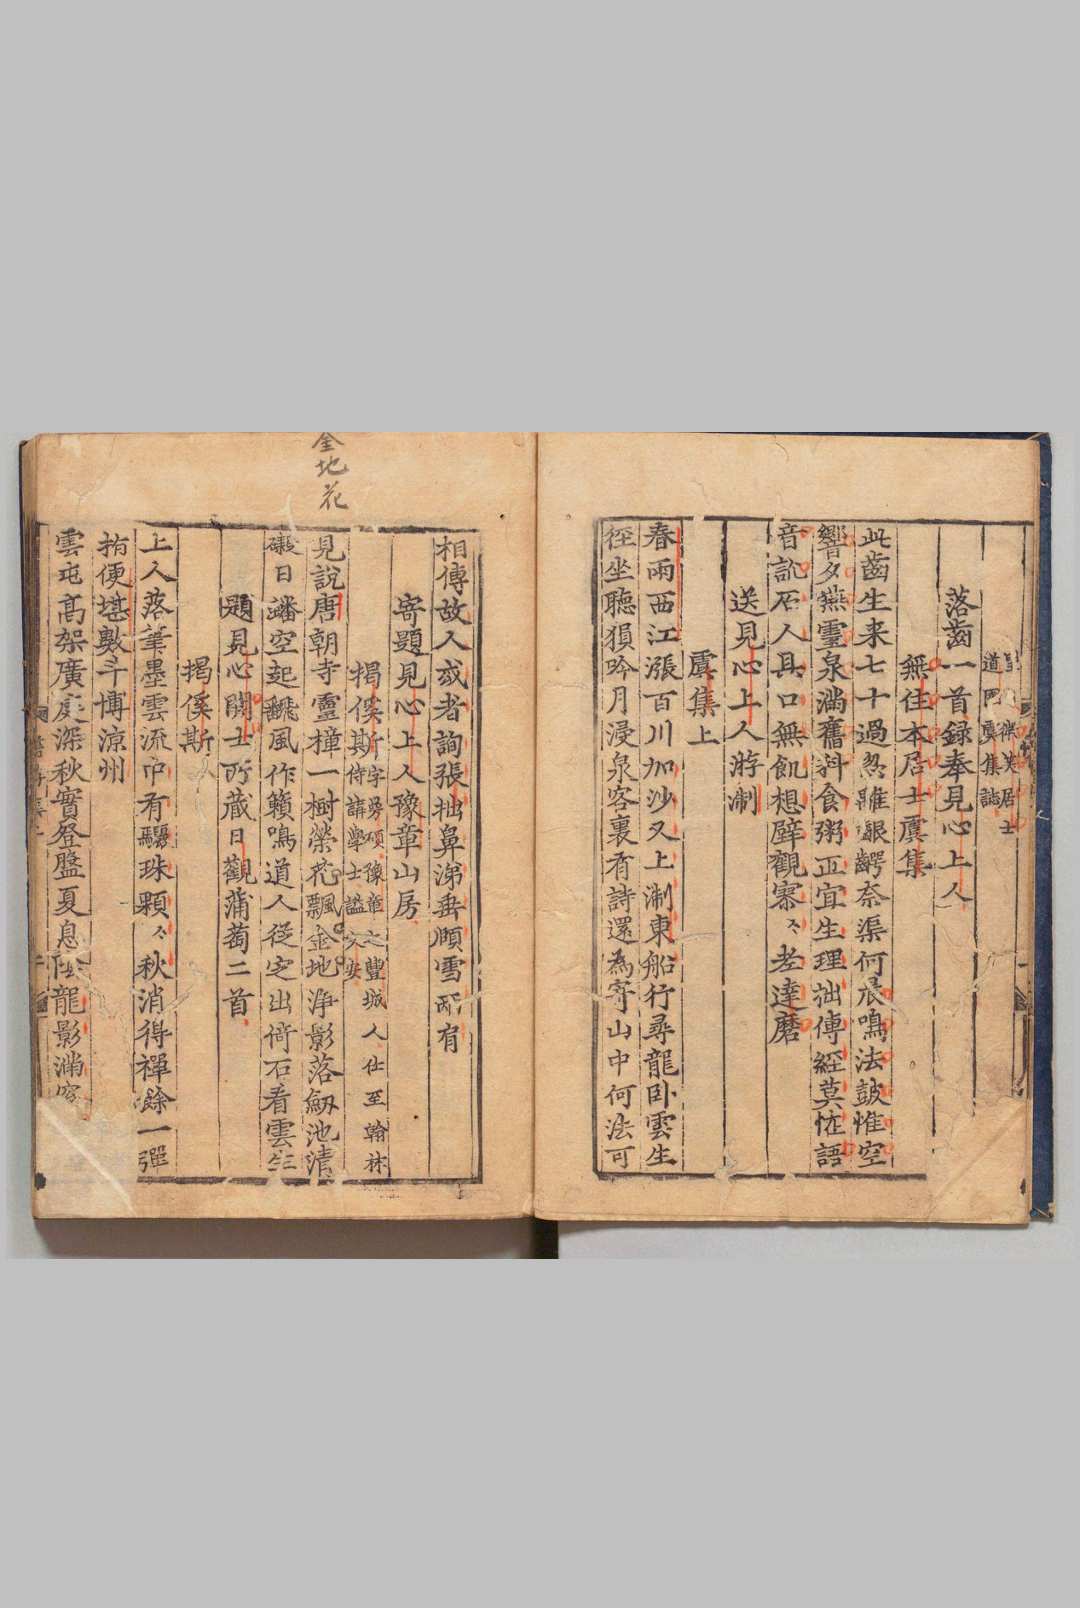 道門虞集誌
落齒一首録奉見心上人
無住本居士虞集
此齒生来七十過忽雖齦齶奈渠何晨鳴法皷惟空
響夕燕靈泉滿舊科食粥正宜生理拙傳經莫恠語
音訛石人具口無飢想壁觀寥々老達磨
送見心上人游淛
虞集上
春雨西江漲百川加沙又上淛東船行尋龍卧雲生
徑坐聽猿吟月浸泉客裏有詩還為寄山中何法可
金地花
相傳故人或者詢張拙鼻涕垂頤雪有
寄題見心上人豫章山房
揭傒斯字曼碩豫章之豐城人仕至翰林侍講學士謚文安
見說唐朝寺靈橦一樹榮花飄金地浄影落釼池清
礙日蟠空起飜風作籟鳴道人從定出倚石看雲生
題見心開士所蔵日觀蒲萄二首
揭傒斯
上人落筆墨雲流中有驪珠顆々秋消得禪餘一彈
指便堪數斗博涼州
雲屯髙架廣庭深秋實登盤夏息陰龍影滿窓